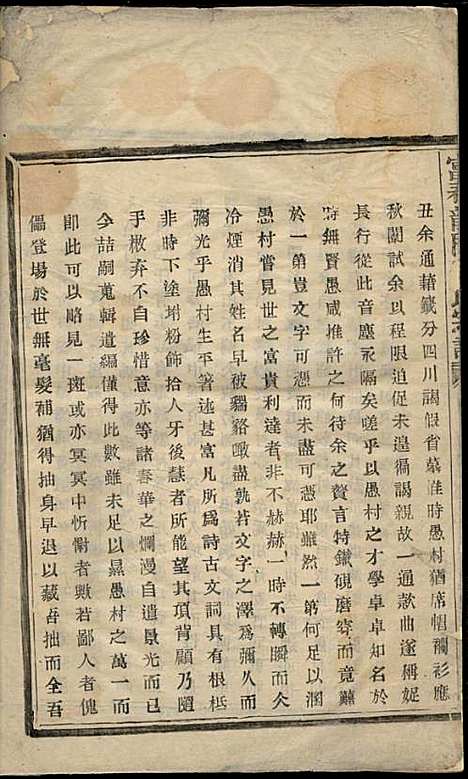 丑余通藉籤分四川謁假省墓准時愚村猶席帽襴衫應
秋闈試余以程限迫促未遑徧謁親故一通款曲遂稱娖
長行從此音塵永隔矣嗟乎以愚村之才學卓卓知名於
時無賢愚咸推許之何待余之贅言特鐵硯磨穿而竟難
於一第豈文字可憑而未盡可憑耶雖然一第何足以溷
愚村嘗見世之富貴利達者非不赫赫一時不轉瞬而久
冷煙消其姓名早被貓貉噉盡孰若文字之澤爲彌久而
彌光乎愚村生平著述甚富凡所爲詩古文詞具有根柢
非時下塗坿粉飾拾人牙後慧者所能望其項背顧乃隨
手枚弃不自珍惜意亦等諸春華之爛漫自遣景光而已
今喆嗣蒐輯遺編僅得此數雖未足以㬎愚村之萬一而
卽此可以略見一斑或亦冥冥中忻慰者歟若鄙人者傀
儡登場於世無毫髮補猶得抽身早退以藏吾拙而全吾